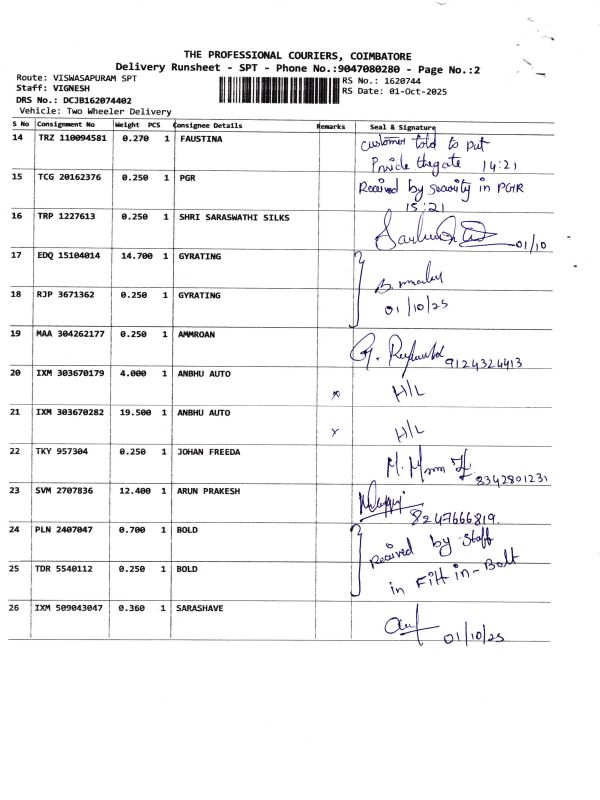 THE PROFESSIONAL COURIERS, COIMBATORE
Delivery Runsheet - SPT - Phone No.:9047080280 - Page No.:2
Route: VISWASAPURAM SPT
RS No.: 1620744
Staff: VIGNESH
RS Date: 01-Oct-2025
DRS No.: DCJB162074402
Vehicle: Two Wheeler Delivery
S No Consignment No Weight PCS Consignee Details Remarks Seal & Signature
14 TRZ 110094581 0.270 1 FAUSTINA
customer told to put
inside the gate 14:21
15 TCG 20162376 0.250 1 PGR
Received by security in PGR
15:21
16 TRP 1227613 0.250 1 SHRI SARASWATHI SILKS
01/10
17 EDQ 15104014 14.700 1 GYRATING
18 RJP 3671362 0.250 1 GYRATING
01/10/25
19 MAA 304262177 0.250 1 AMMROAN
9124324413
20 IXM 303670179 4.000 1 ANBHU AUTO
x H/L
21 IXM 303670282 19.500 1 ANBHU AUTO
x H/L
22 TKY 957304 0.250 1 JOHAN FREEDA
8342801231
23 SVM 2707836 12.400 1 ARUN PRAKESH
8247666819.
24 PLN 2407047 0.700 1 BOLD
Received by staff
25 TDR 5540112 0.250 1 BOLD
in Fitt in-Bolt
26 IXM 509043047 0.360 1 SARASHAVE
01/10/25